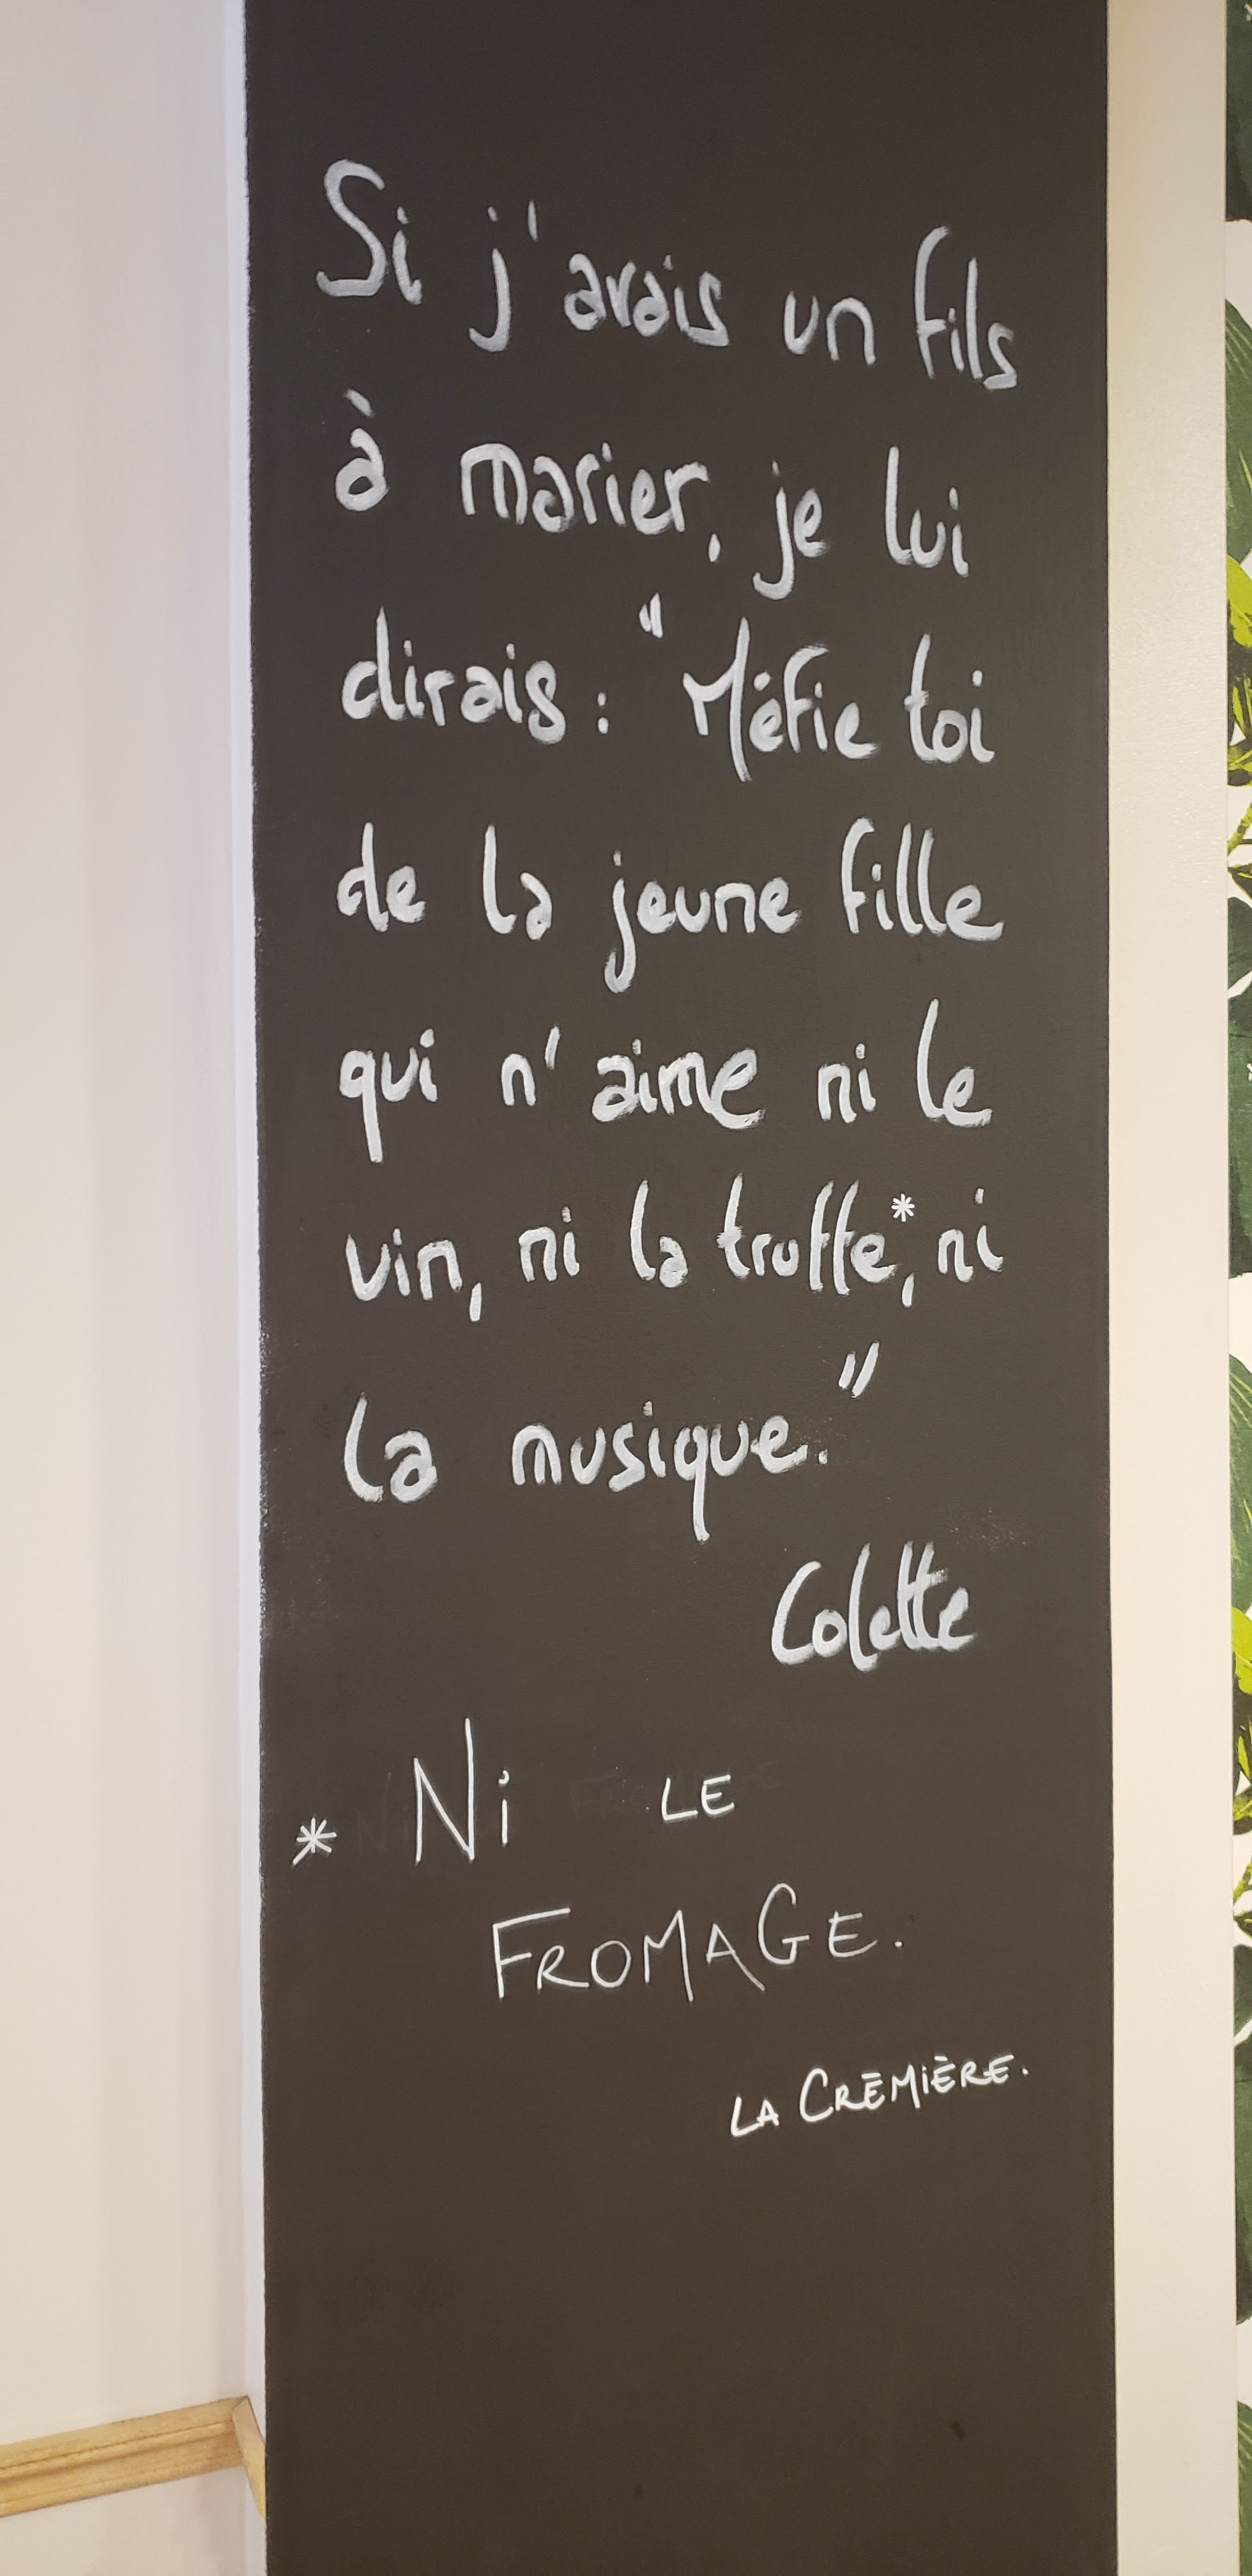 Si j'avais un fils
à marier, je lui
dirais : "Méfie toi
de la jeune fille
qui n'aime ni le
vin, ni la truffe*, ni
la musique."
Colette
* Ni LE
FROMAGE.
LA CRÉMIÈRE.